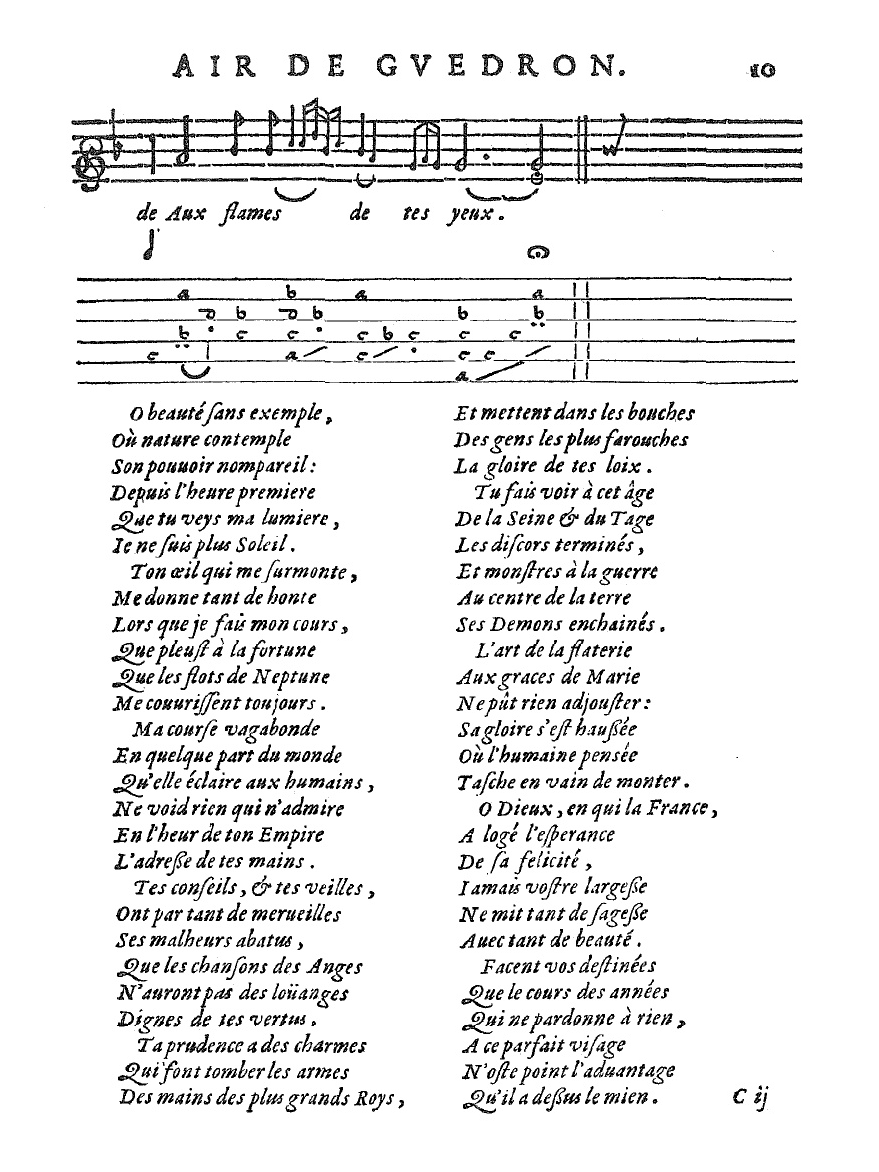 AIR DE GVEDRON. 10
de Aux flames de tes yeux.
a b a a
d b d b b b
b c c c b c c c
c a c c c
a
O beauté ſans exemple,
Où nature contemple
Son pouuoir nompareil:
Depuis l'heure premiere
Que tu veys ma lumiere,
Ie ne ſuis plus Soleil.
Ton œil qui me ſurmonte,
Me donne tant de honte
Lors que je fais mon cours,
Que pleuſt à la fortune
Que les flots de Neptune
Me couuriſſent toujours.
Ma courſe vagabonde
En quelque part du monde
Qu'elle éclaire aux humains,
Ne void rien qui n'admire
En l'heur de ton Empire
L'adreſſe de tes mains.
Tes conſeils, & tes veilles,
Ont par tant de merueilles
Ses malheurs abatus,
Que les chanſons des Anges
N'auront pas des loüanges
Dignes de tes vertus.
Ta prudence a des charmes
Qui font tomber les armes
Des mains des plus grands Roys,
Et mettent dans les bouches
Des gens les plus farouches
La gloire de tes loix.
Tu fais voir à cet âge
De la Seine & du Tage
Les diſcors terminés,
Et monſtres à la guerre
Au centre de la terre
Ses Demons enchainés.
L'art de la flaterie
Aux graces de Marie
Ne pût rien adjouſter:
Sa gloire s'eſt hauſſée
Où l'humaine pensée
Taſche en vain de monter.
O Dieux, en qui la France,
A logé l'eſperance
De ſa felicité,
Iamais voſtre largeſſe
Ne mit tant de ſageſſe
Auec tant de beauté.
Facent vos deſtinées
Que le cours des années
Qui ne pardonne à rien,
A ce parfait viſage
N'oſte point l'aduantage
Qu'il a deſſus le mien.
C ij